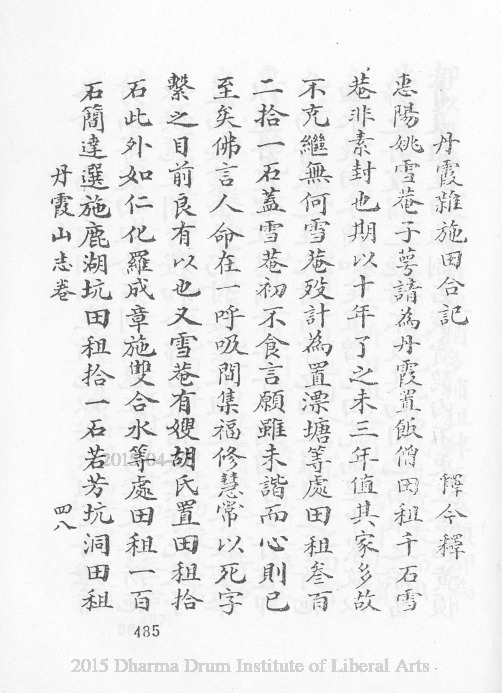 丹霞雜施田合記　釋今釋
惠陽姚雪菴子蕚請為丹霞置飯僧田租千石雪
菴非素封也期以十年了之未三年值其家多故
不克繼無何雪菴歿計為置漂塘等處田租叁百
二拾一石蓋雪菴初不食言願雖未諧而心則已
至矣佛言人命在一呼吸間集福修慧常以死字
繫之目前良有以也又雪菴有嫂胡氏置田租拾
石此外如仁化羅成章施雙合水等處田租一百
石簡違選施鹿湖坑田租拾一石若芳坑洞田租
丹霞山志卷　四八
485
2015 Dharma Drum Institute of Liberal Arts